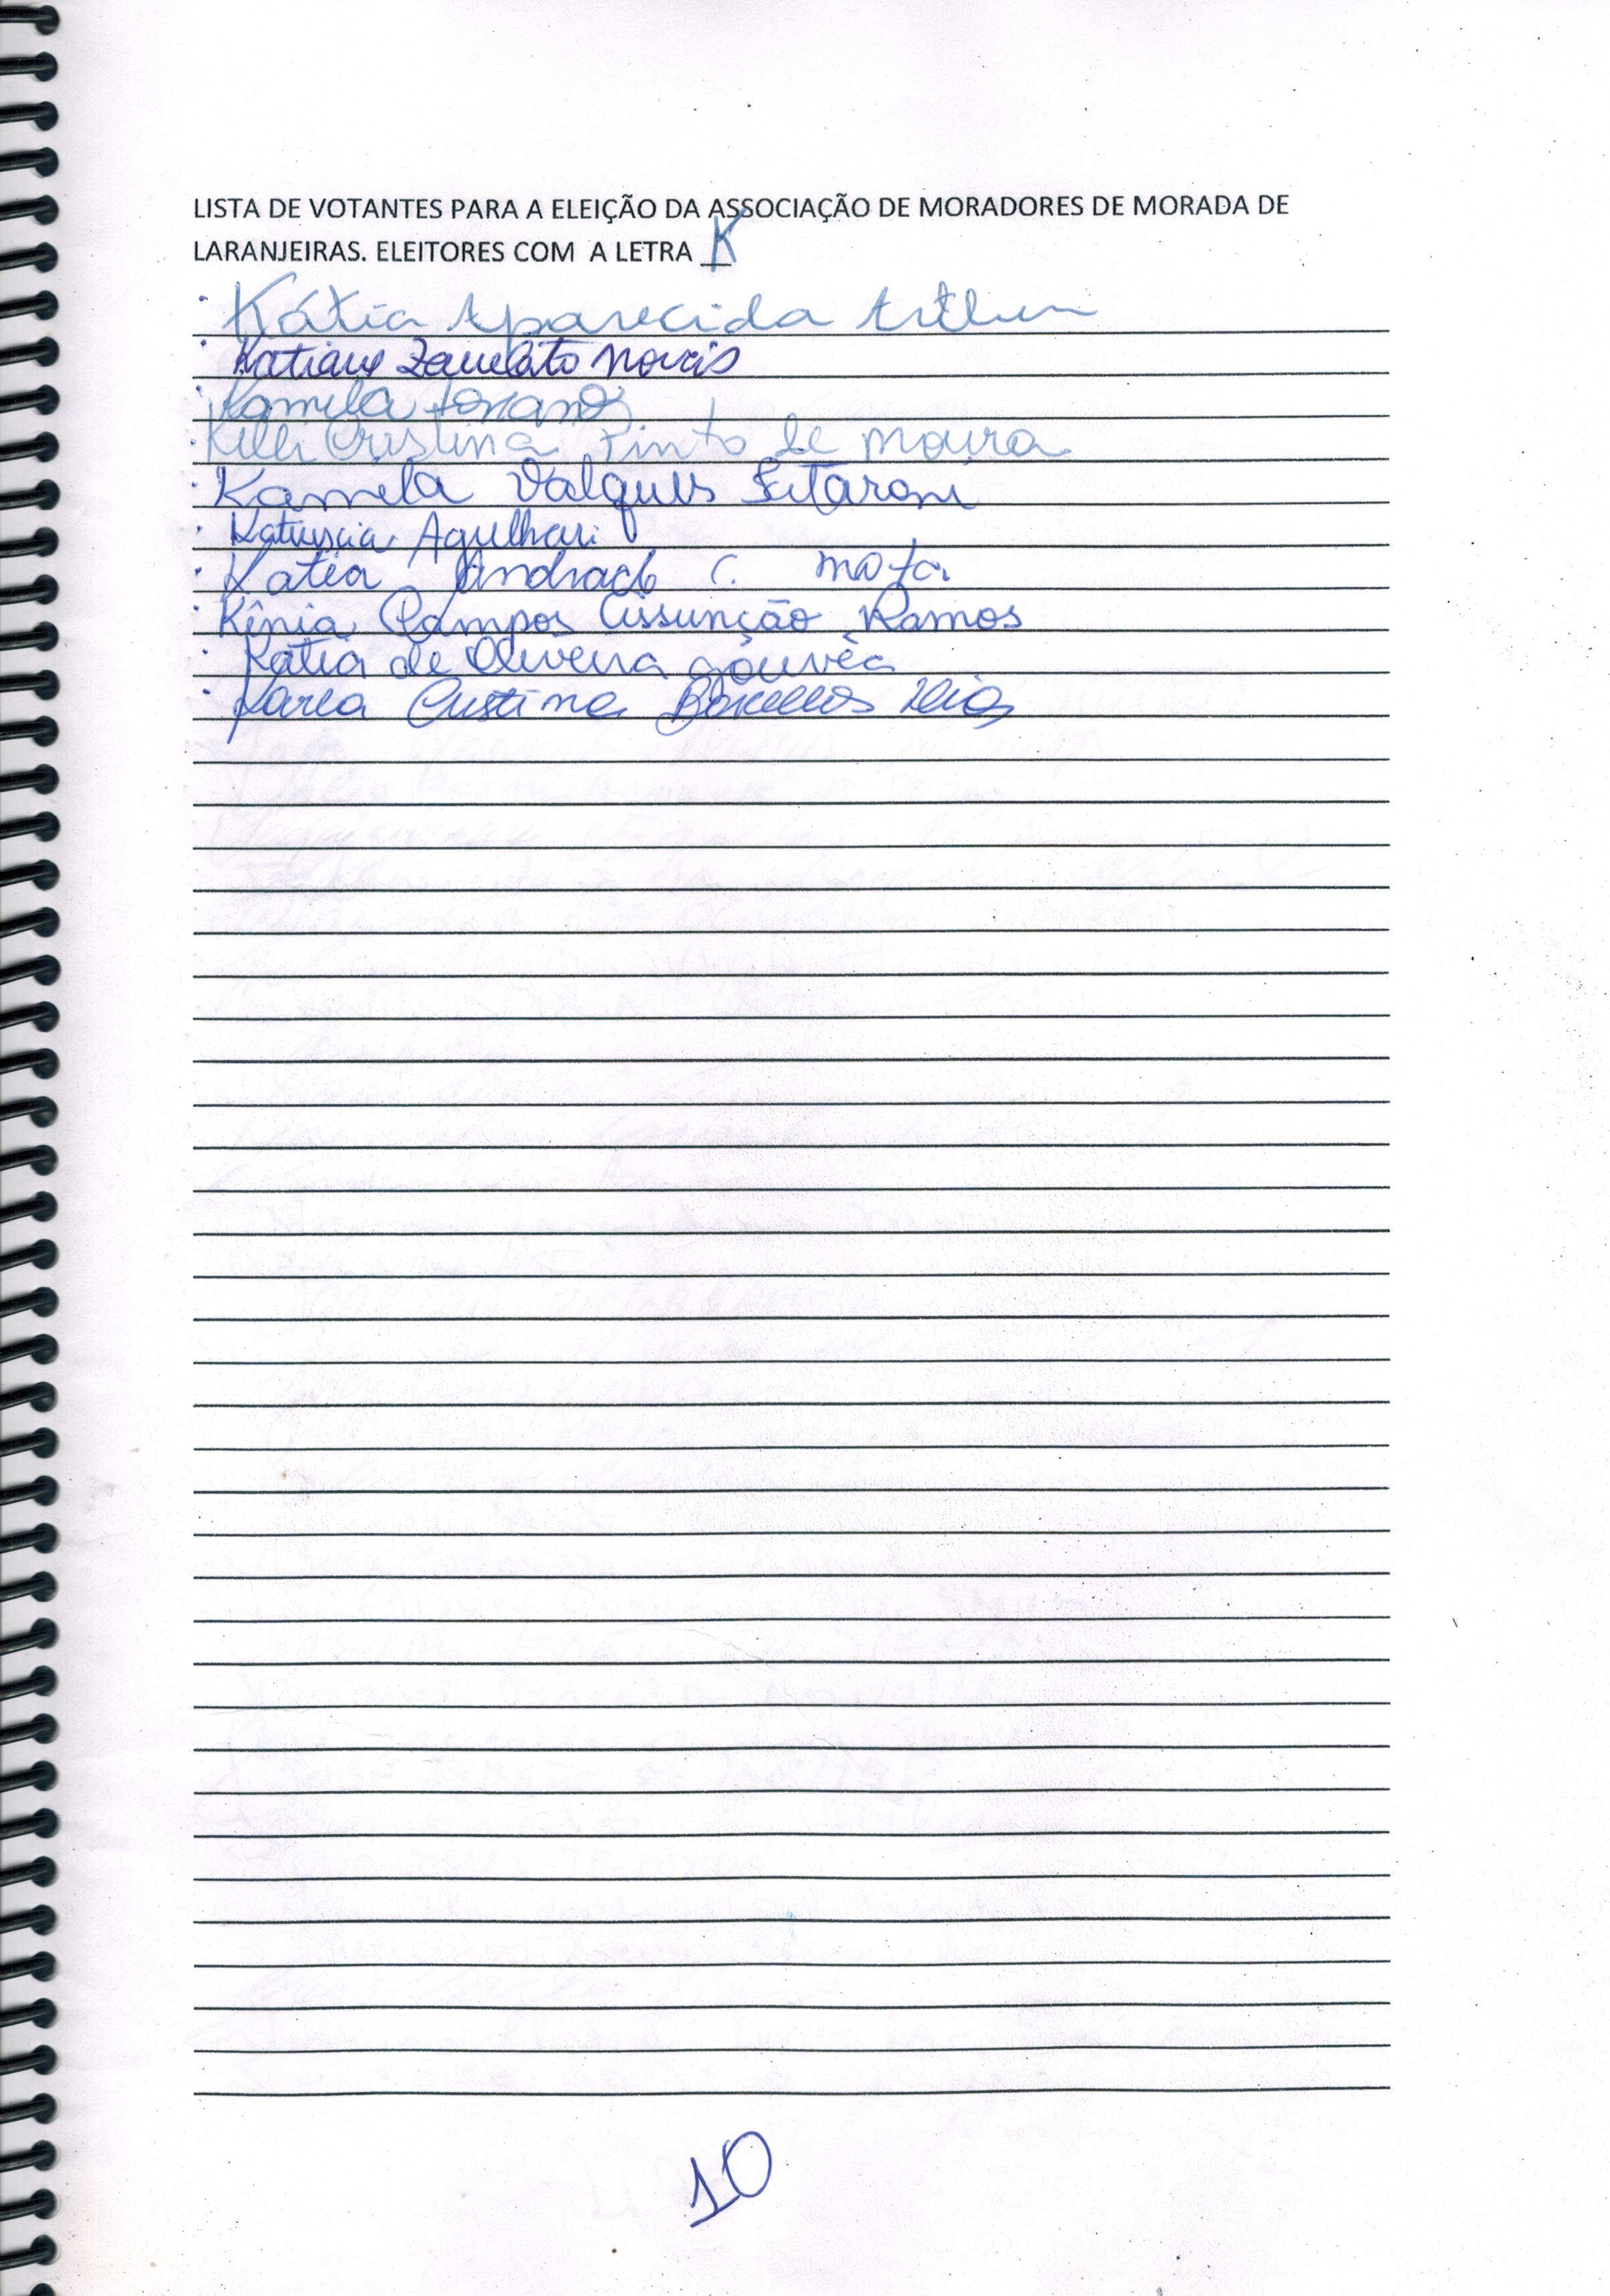 LISTA DE VOTANTES PARA A ELEIÇÃO DA ASSOCIAÇÃO DE MORADORES DE MORADA DE
LARANJEIRAS. ELEITORES COM A LETRA K
Kátia Aparecida
Katiany Zanelato Novais
Kamila
Kelli Cristina Pinto de Moura
Kamila Valques
Katiuscia Agulhari
Katia Andrade C. Mota
Kênia Campos Assunção Ramos
Katia de Oliveira Gouvêa
Karla Cristina Dias
10